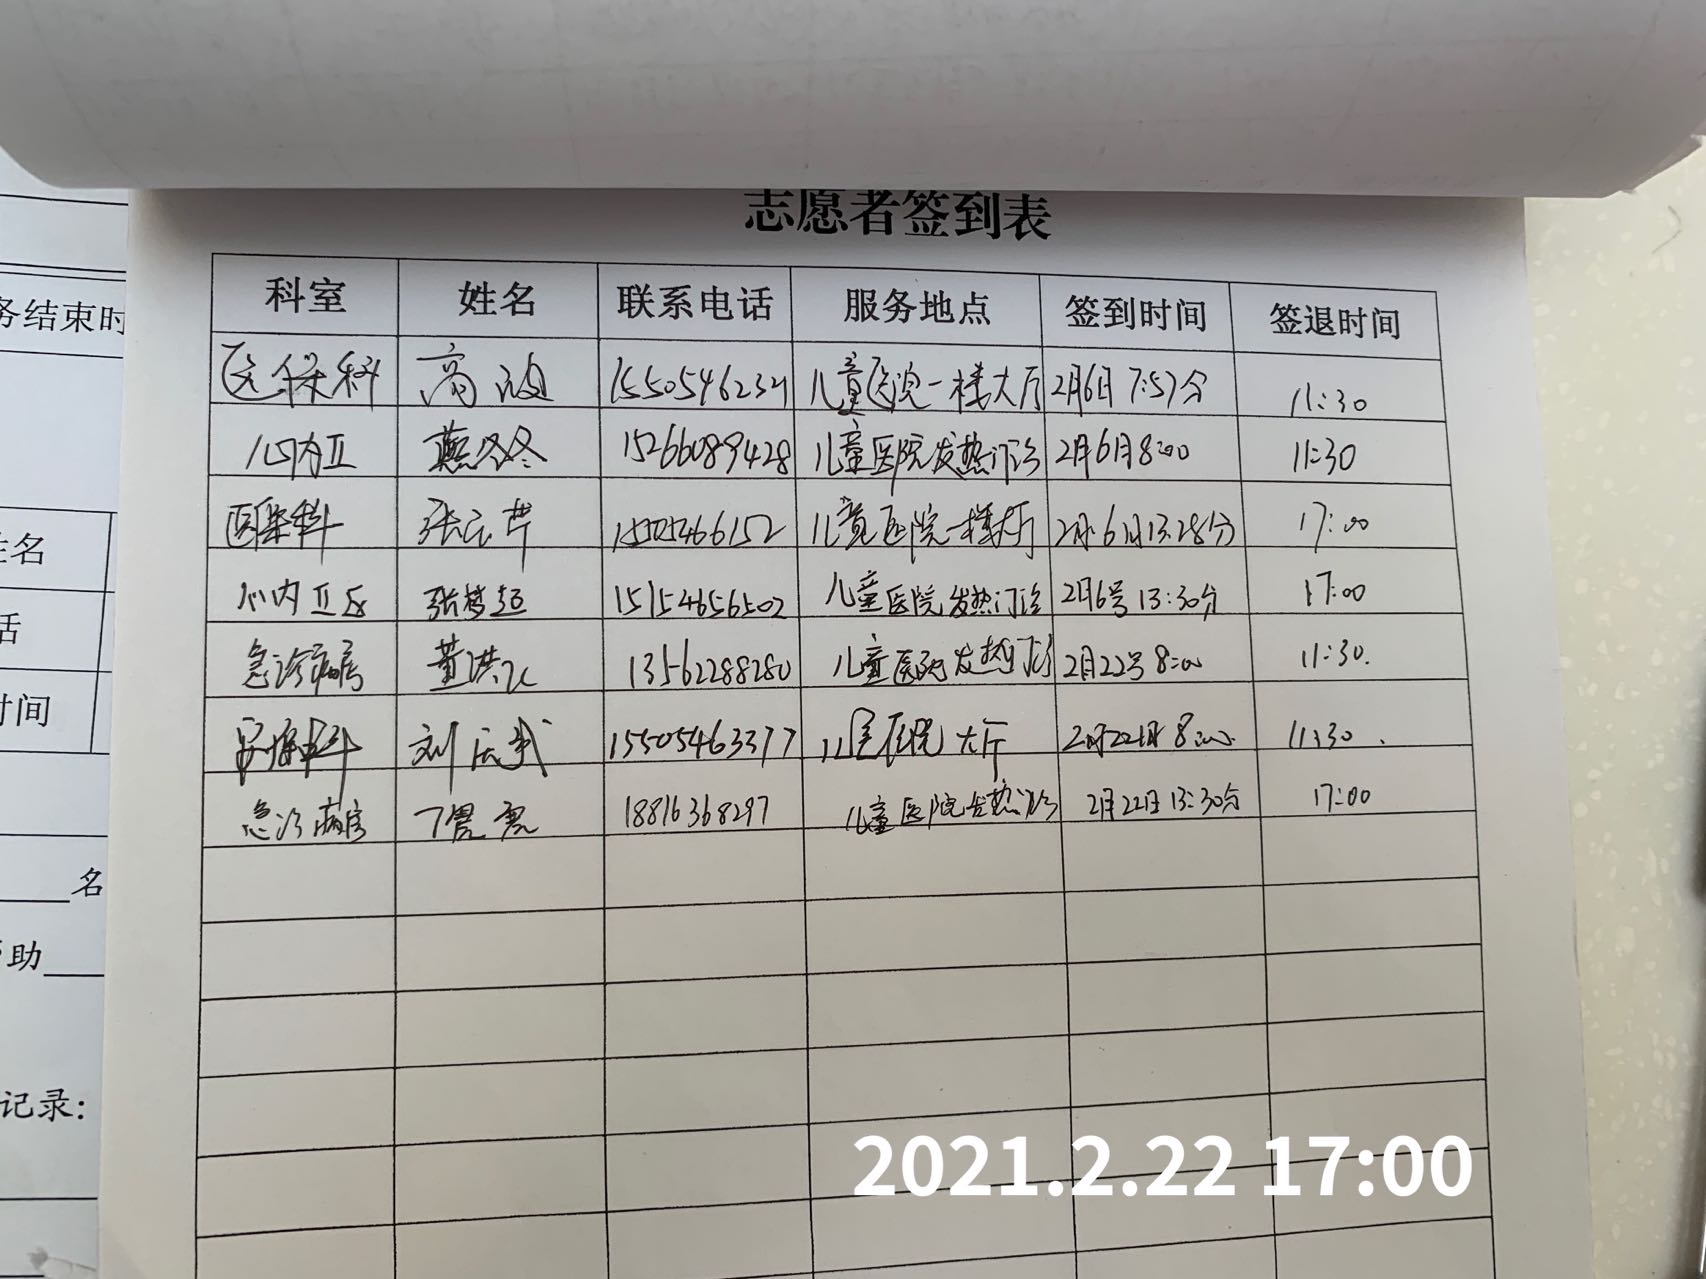 志愿者签到表
科室 姓名 联系电话 服务地点 签到时间 签退时间
医保科 高波 15505462321 儿童医院一楼大厅 2月6日 7:57分 11:30
心内Ⅱ 燕冬冬 15266089428 儿童医院发热门诊 2月6日8:00 11:30
科 张云芹 15505466152 儿童医院一楼大厅 2月6日13:28分 17:00
心内Ⅱ区 张梦超 15154656502 儿童医院发热门诊 2月6号 13:30分 17:00
急诊病房 董洪 13562288280 儿童医院发热门诊 2月22号 8:00 11:30.
科 刘庆武 15505463377 儿童医院 大厅 2月22日 8:00 11:30.
急诊病房 丁 18816368297 儿童医院发热门诊 2月22日 13:30分 17:00
务结束时
姓名
话
时间
名
助
记录:
2021.2.22 17:00